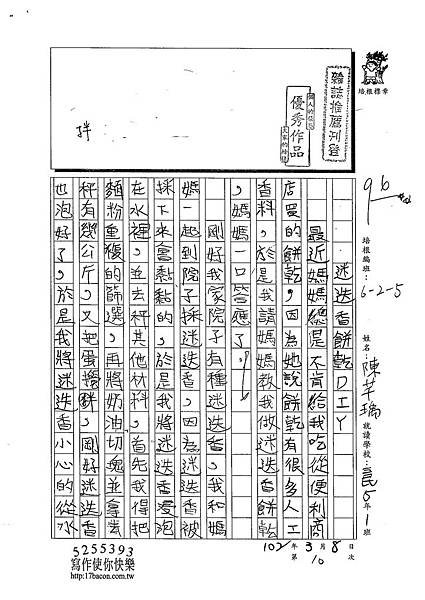 雜誌推薦刊登
培根標章
個人的佳作
優秀作品
大家的榜樣
拌
96
培根編班：6-2-5
姓名：陳芊瑀
就讀學校：民 5年1班
102年3月8日
第10次
迷迭香餅乾DIY
最近媽媽總是不肯給我吃從便利商
店買的餅乾，因為她說餅乾有很多人工
香料，於是我請媽媽教我做迷迭香餅乾
，媽媽一口答應了。
剛好我家院子有種迷迭香，我和媽
媽一起到院子採迷迭香，因為迷迭香被
採下來會黏黏的，於是我將迷迭香浸泡
在水裡，並去秤其他材料，首先我得把
麵粉重複的篩選，再將奶油切塊並拿去
秤有幾公斤，又把蛋攪拌，剛好迷迭香
也泡好了，於是我將迷迭香小心的從水
5255393
寫作使你快樂
http://17bacon.com.tw